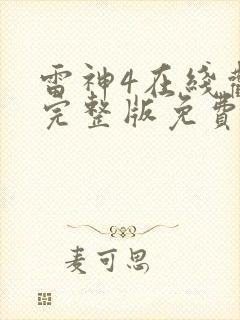 雷神4在线
完整版免费
麦可思